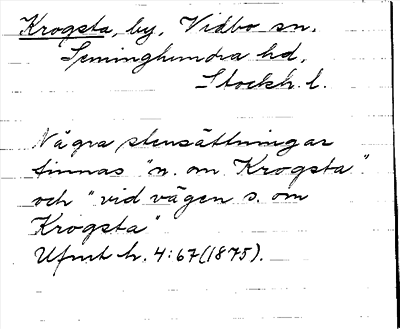 Krogsta, by, Vidbo sn,
Seminghundra hd,
Stockh. l.
Några stensättningar
finnas "n. om Krogsta"
och "vid vägen s. om
Krogsta"
Ufmt h. 4:67(1875).